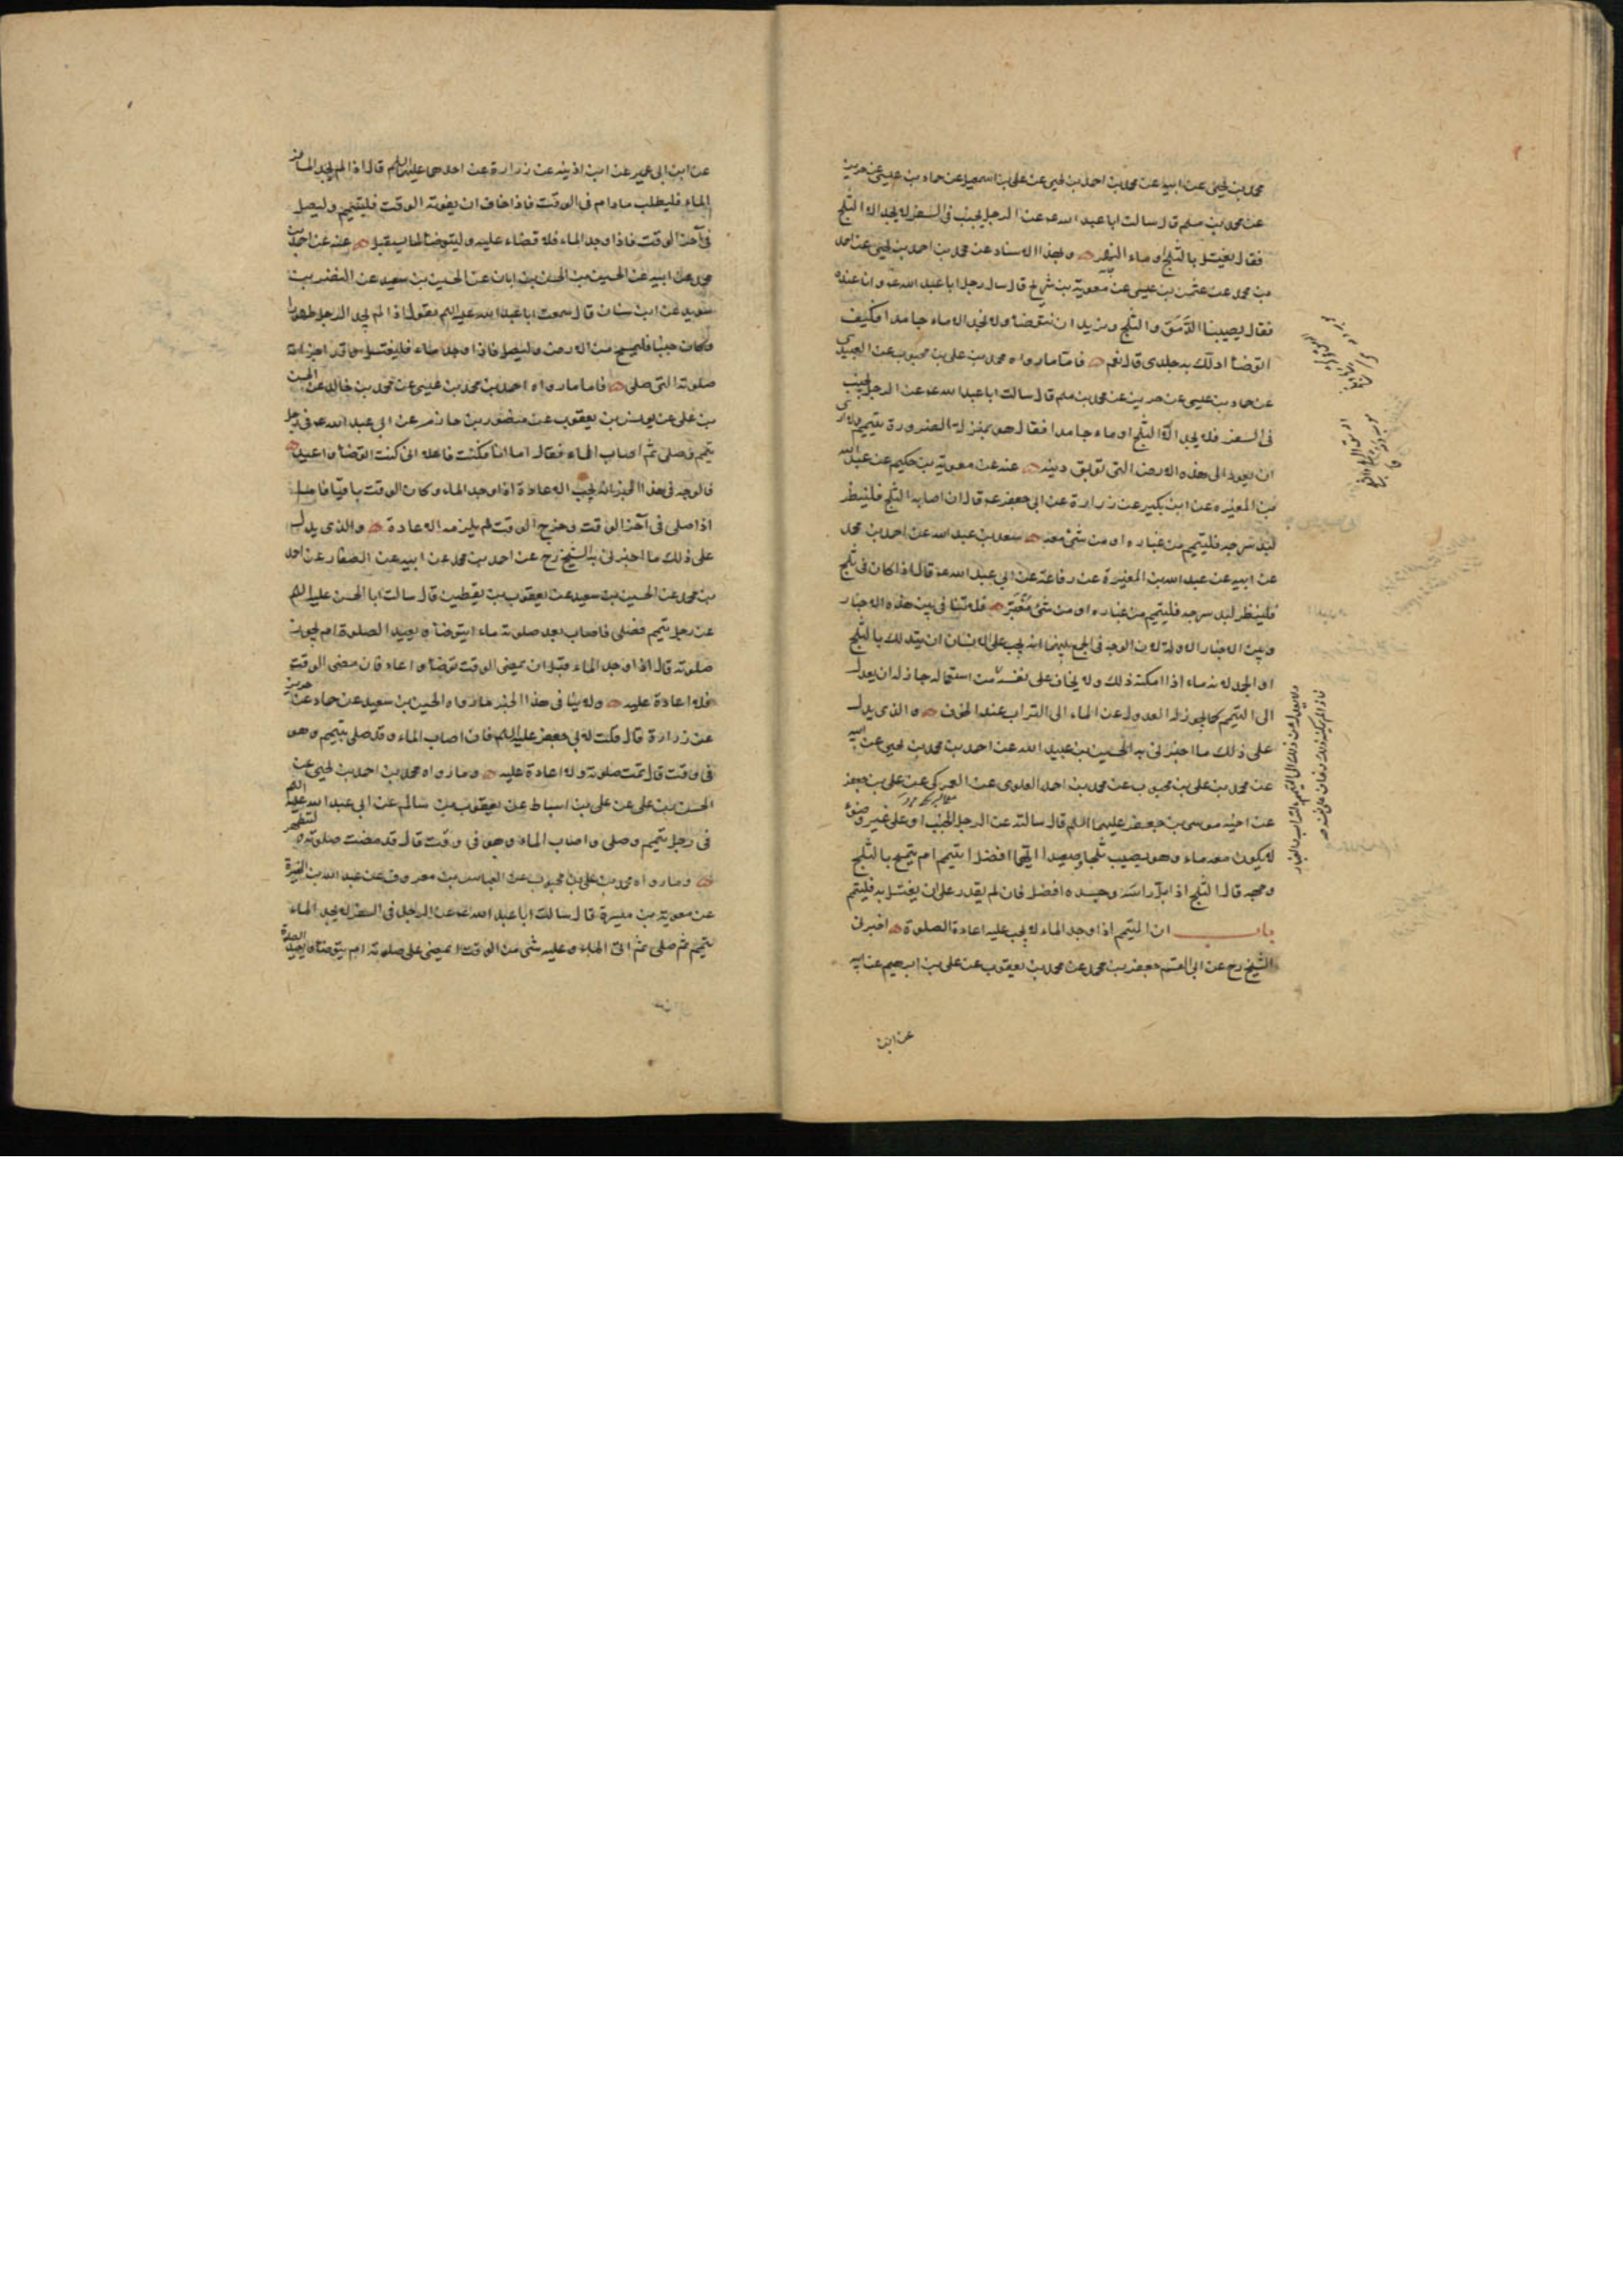 محمد بن يحيى عن ابيه عن محمد بن احمد بن يحيى عن على بن اسمعيل عن حماد بن عيسى عن حريز
عن محمد بن مسلم قال سالت ابا عبد الله ع عن الرجل يجنب فى السفر لا يجد الا الثلج
فقال يغتسل بالثلج او ماء النهر وبهذا الاسناد عن محمد بن احمد بن يحيى عن احمد
بن محمد عن عثمن بن عيسى عن معوية بن شريح قال سال رجل ابا عبد الله ع وانا عنده
فقال يصيبنا الدمق والثلج ونريد ان نتوضأ ولا نجد الا ماء جامدا فكيف
اتوضأ ادلك به جلدى قال نعم فاما ما رواه محمد بن على بن محبوب عن العبيدى
عن حماد بن عيسى عن حريز عن محمد بن مسلم قال سالت ابا عبد الله ع عن الرجل يجنب
فى السفر فلا يجد الا الثلج او ماء جامدا فقال هو بمنزلة الضرورة يتيمم ولا ارى
ان يعود الى هذه الارض التى توبق دينه عنه عن معوية بن حكيم عن عبد الله
بن المغيره عن ابن بكير عن زرارة عن ابى جعفر ع قال ان اصابه الثلج فلينظر
لبد سرجه فليتيمم من غباره او من شئ معه سعد بن عبد الله عن احمد بن محمد
عن ابيه عن عبد الله بن المغيرة عن رفاعة عن ابى عبد الله ع قال اذا كان فى ثلج
فلينظر لبد سرجه فليتيمم من غباره او من شئ مُغْبَرّ فلا تنافى بين هذه الاخبار
وبين الاخبار الاولة لان الوجه فى الجمع بينهما انه يجب على الانسان ان يتدلك بالثلج
او الجمد لانه ماء اذا امكنه ذلك ولا يخاف على نفسه من استعماله جاز له ان يعدل
الى التيمم كما يجوز له العدول عن الماء الى التراب عند الخوف والذى يدل
على ذلك ما اخبرنى به الحسين بن عبيد الله عن احمد بن محمد بن يحيى عن ابيه
عن محمد بن على بن محبوب عن محمد بن احمد العلوى عن العمركى عن على بن جعفر
عن اخيه موسى بن جعفر عليهما السلم قال سالته عن الرجل الجنب او على غير وضوء
لا يكون معه ماء وهو يصيب ثلجا وصعيدا ايهما افضل ايتيمم ام يتمسح بالثلج
وجهه قال الثلج اذا بل راسه وجسده افضل فان لم يقدر على ان يغتسل به فليتيمم
باب ان المتيمم اذا وجد الماء لا يجب عليه اعادة الصلوة اخبرنى
الشيخ رح عن ابى القسم جعفر بن محمد عن محمد بن يعقوب عن على بن ابرهيم عن ابيه
عن ابن
عن ابن ابى عمير عن ابن اذينه عن زرارة عن احدهما عليهما السلم قال اذا لم يجد المسافر
الماء فليطلب مادام فى الوقت فاذا خاف ان يفوته الوقت فليتيمم وليصل
فى آخر الوقت فاذا وجد الماء فلا قضاء عليه وليتوضأ لما يستقبل عنه عن احمد بن
محمد عن ابيه عن الحسين بن الحسن بن ابان عن الحسين بن سعيد عن النضر بن
سويد عن ابن سنان قال سمعت ابا عبد الله عليه السلم يقول اذا لم يجد الرجل طهورا
وكان جنبا فليمسح من الارض وليصل فاذا وجد ماء فليغتسل وقد اجزأته
صلوته التى صلى فاما ما رواه احمد بن محمد بن عيسى عن محمد بن خالد عن الحسن
بن على عن يونس بن يعقوب عن منصور بن حازم عن ابى عبد الله ع فى رجل
تيمم فصلى ثم اصاب الماء فقال اما انا فكنت فاعلا انى كنت اتوضأ واعيد
فالوجه فى هذا الخبر انه يجب الاعادة اذا وجد الماء وكان الوقت باقيا فاما
اذا صلى فى آخر الوقت وخرج الوقت لم يلزمه الاعادة والذى يدل
على ذلك ما اخبرنى به الشيخ رح عن احمد بن محمد عن ابيه عن الصفار عن احمد
بن محمد عن الحسين بن سعيد عن يعقوب بن يقطين قال سالت ابا الحسن عليه السلم
عن رجل تيمم فصلى فاصاب بعد صلوته ماء ايتوضأ ويعيد الصلوة ام تجوز
صلوته قال اذا وجد الماء قبل ان يمضى الوقت توضأ واعاد فان مضى الوقت
فلا اعادة عليه ولا ينافى هذا الخبر ما رواه الحسين بن سعيد عن حماد عن حريز
عن زرارة قال قلت لابى جعفر عليه السلم فان اصاب الماء وقد صلى بتيمم وهو
فى وقت قال تمت صلوته ولا اعادة عليه وما رواه محمد بن احمد بن يحيى عن
الحسن بن على عن على بن اسباط عن يعقوب بن سالم عن ابى عبد الله عليه السلم
فى رجل تيمم وصلى واصاب الماء وهو فى وقت قال قد مضت صلوته وليتطهر
وما رواه محمد بن على بن محبوب عن العباس بن معروف عن عبد الله بن المغيرة
عن معوية بن ميسرة قال سالت ابا عبد الله ع عن الرجل فى السفر لا يجد الماء
تيمم ثم صلى ثم اتى الماء وعليه شئ من الوقت ايمضى على صلوته ام يتوضأ ويعيد الصلوة